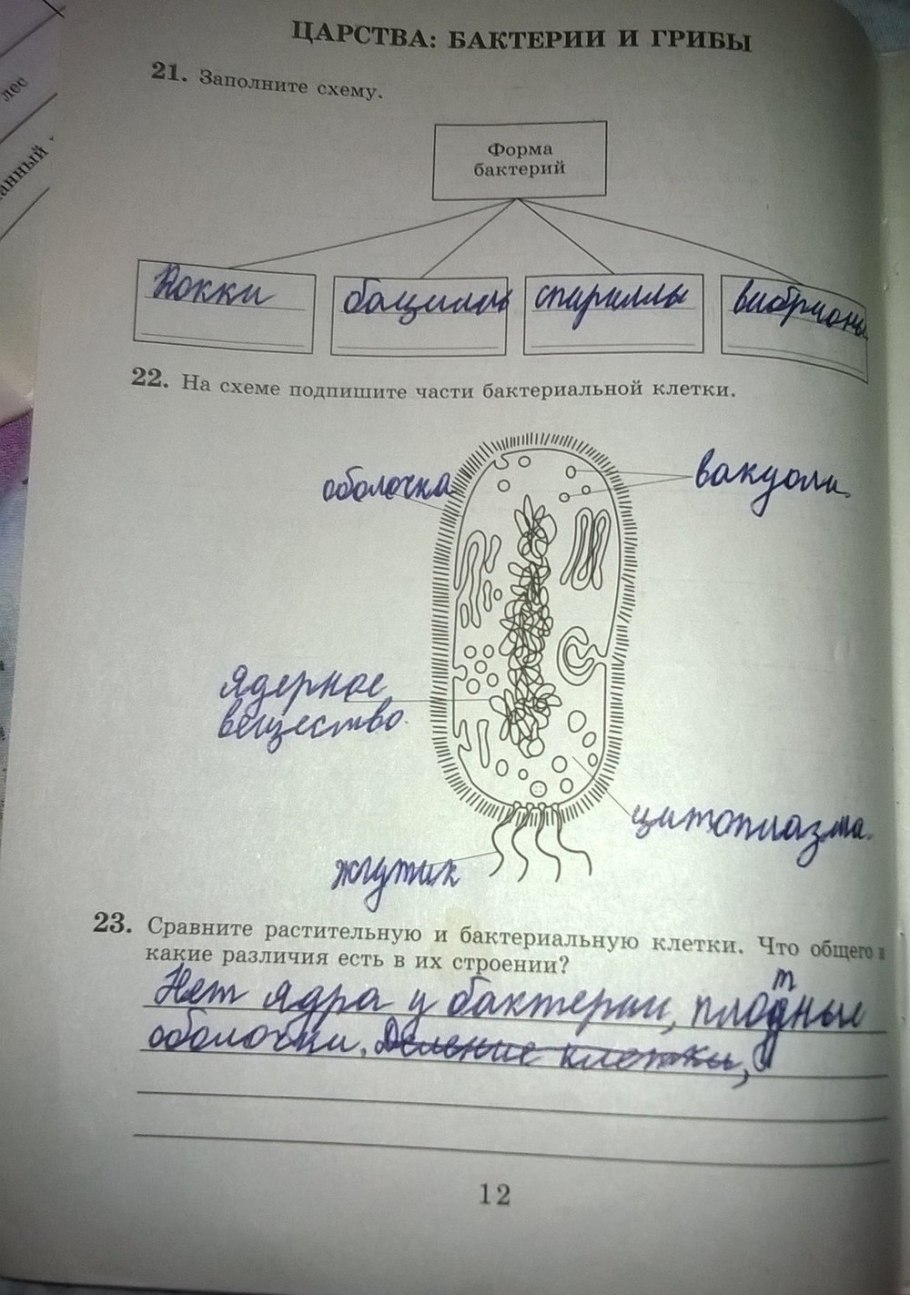 лес
анный
ЦАРСТВА: БАКТЕРИИ И ГРИБЫ
21. Заполните схему.
Форма
бактерий
Кокки
бациллы
спириллы
вибрионы
22. На схеме подпишите части бактериальной клетки.
оболочка
вакуоли.
ядерное
вещество.
цитоплазма.
жгутик
23. Сравните растительную и бактериальную клетки. Что общего и
какие различия есть в их строении?
Нет ядра у бактерии, плотные
оболочки. Деление клетки,
12